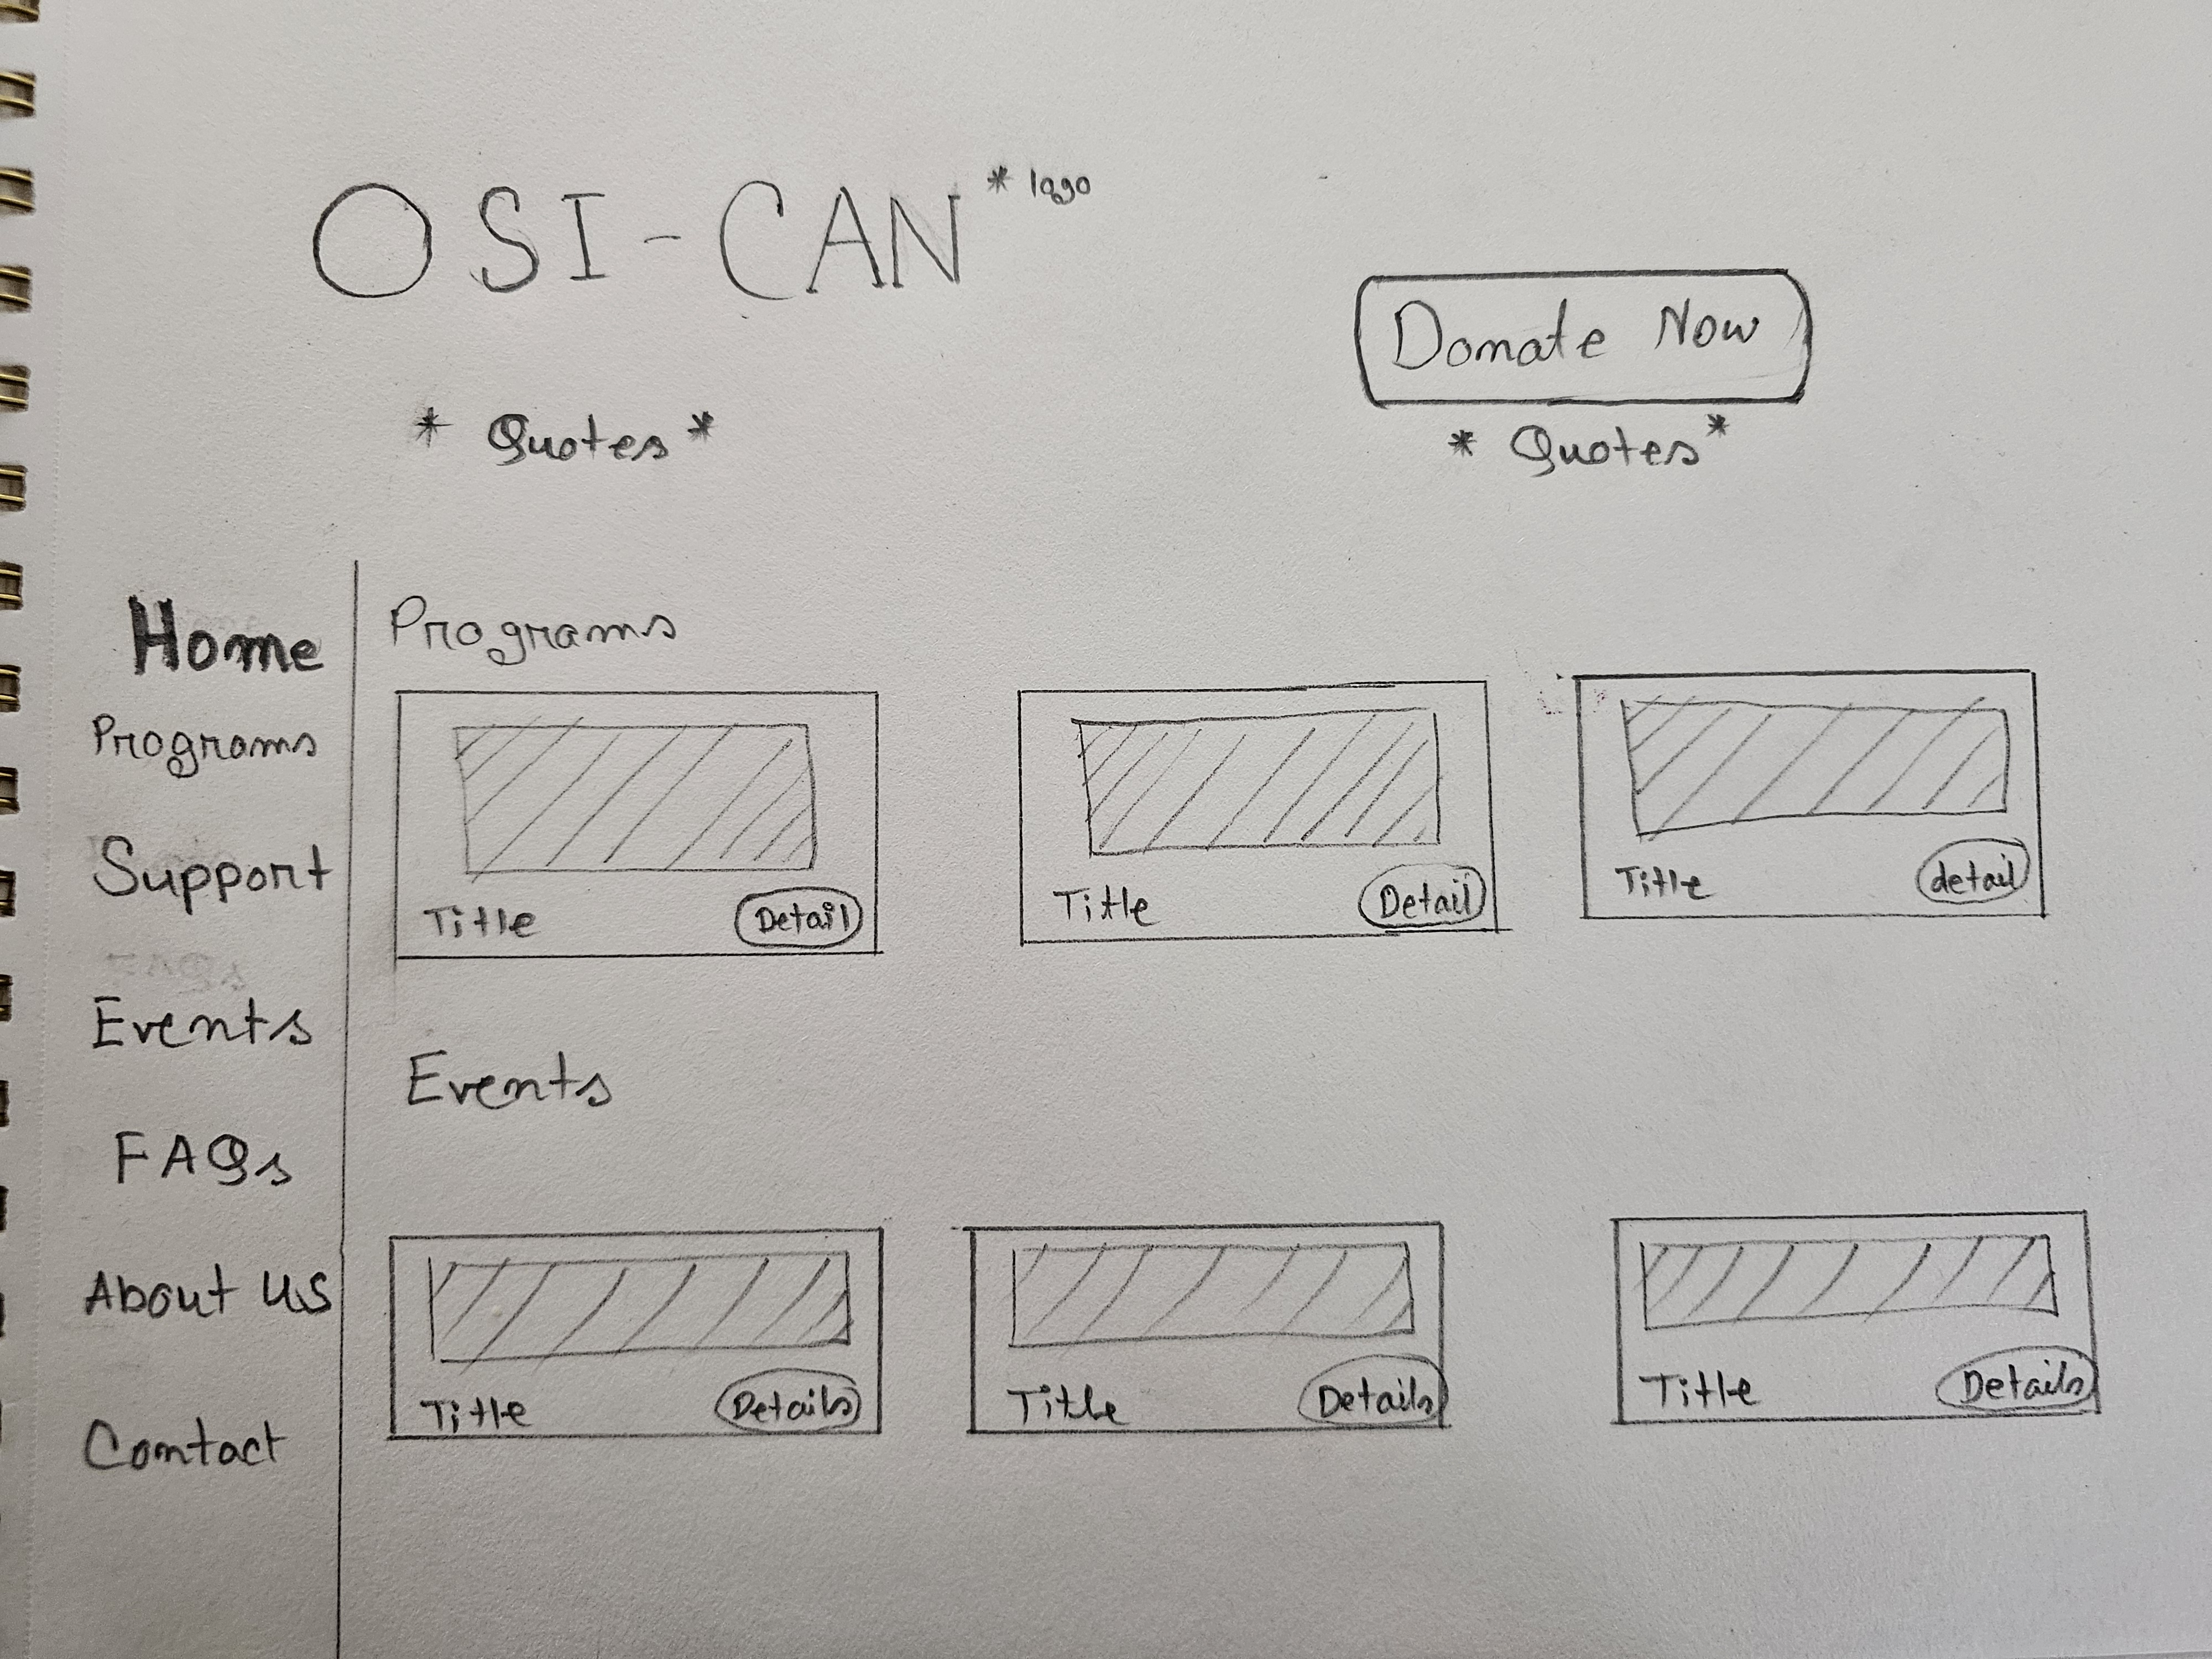 OSI-CAN * logo
Donate Now
* Quotes *
* Quotes *
Home
Programs
Support
Events
FAQs
About us
Contact
Programs
Title Detail
Title Detail
Title detail
Events
Title Details
Title Details
Title Details